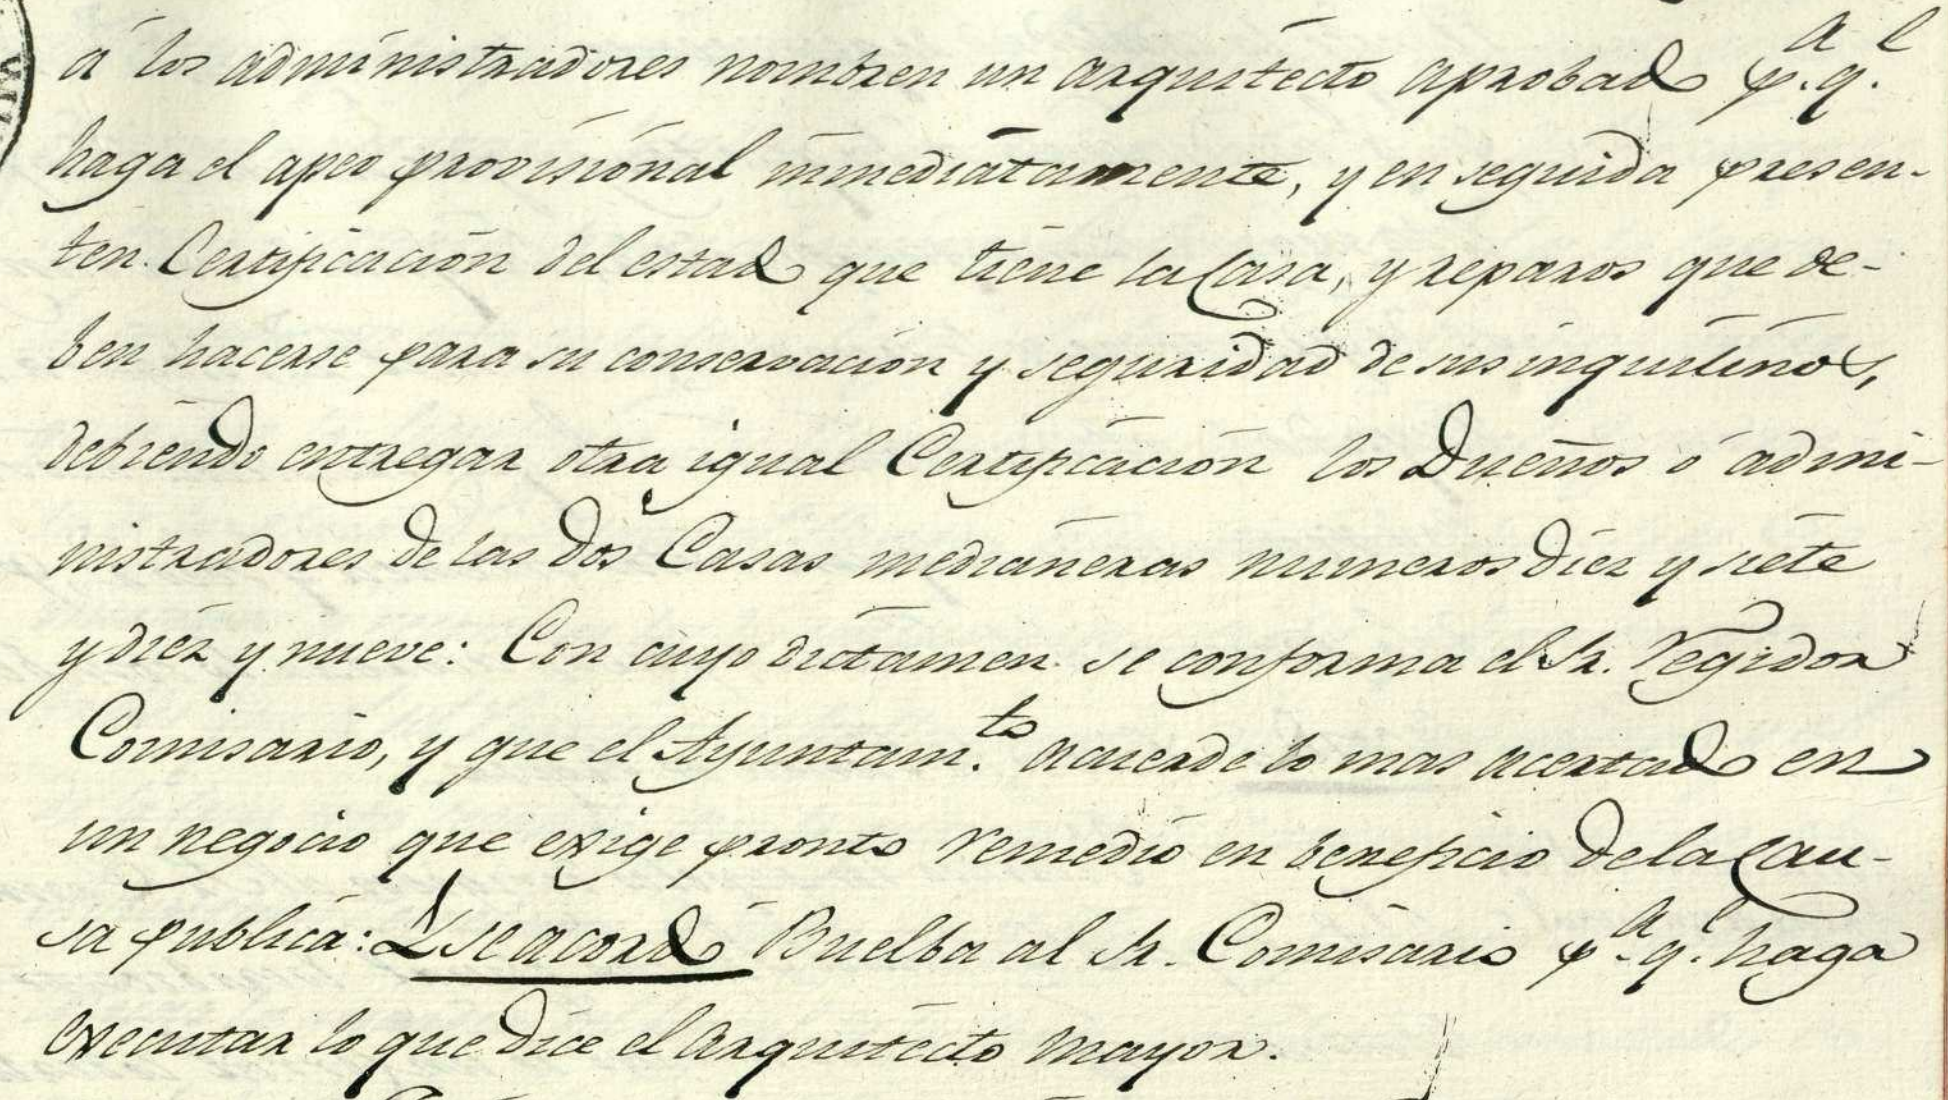 á los administradores nombren un arquitecto aprobado p.ª q.e
haga el apeo provisional inmediatamente, y en seguida presen-
ten Certificacion del estado que tiene la Casa, y reparos que de-
ben hacerse para su conservacion y seguridad de sus inquilinos,
debiendo entregar otra igual Certificacion los Dueños ó admi-
nistradores de las dos Casas medianeras numeros diez y siete
y diez y nueve: Con cuyo dictamen se conforma el Sr. Regidor
Comisario, y que el Ayuntam.to acuerde lo mas acertado en
un negocio que exige pronto remedio en beneficio de la Cau-
sa publica: Y se acordó Buelba al Sr. Comisario p.ª q.e haga
executar lo que dice el Arquitecto mayor.